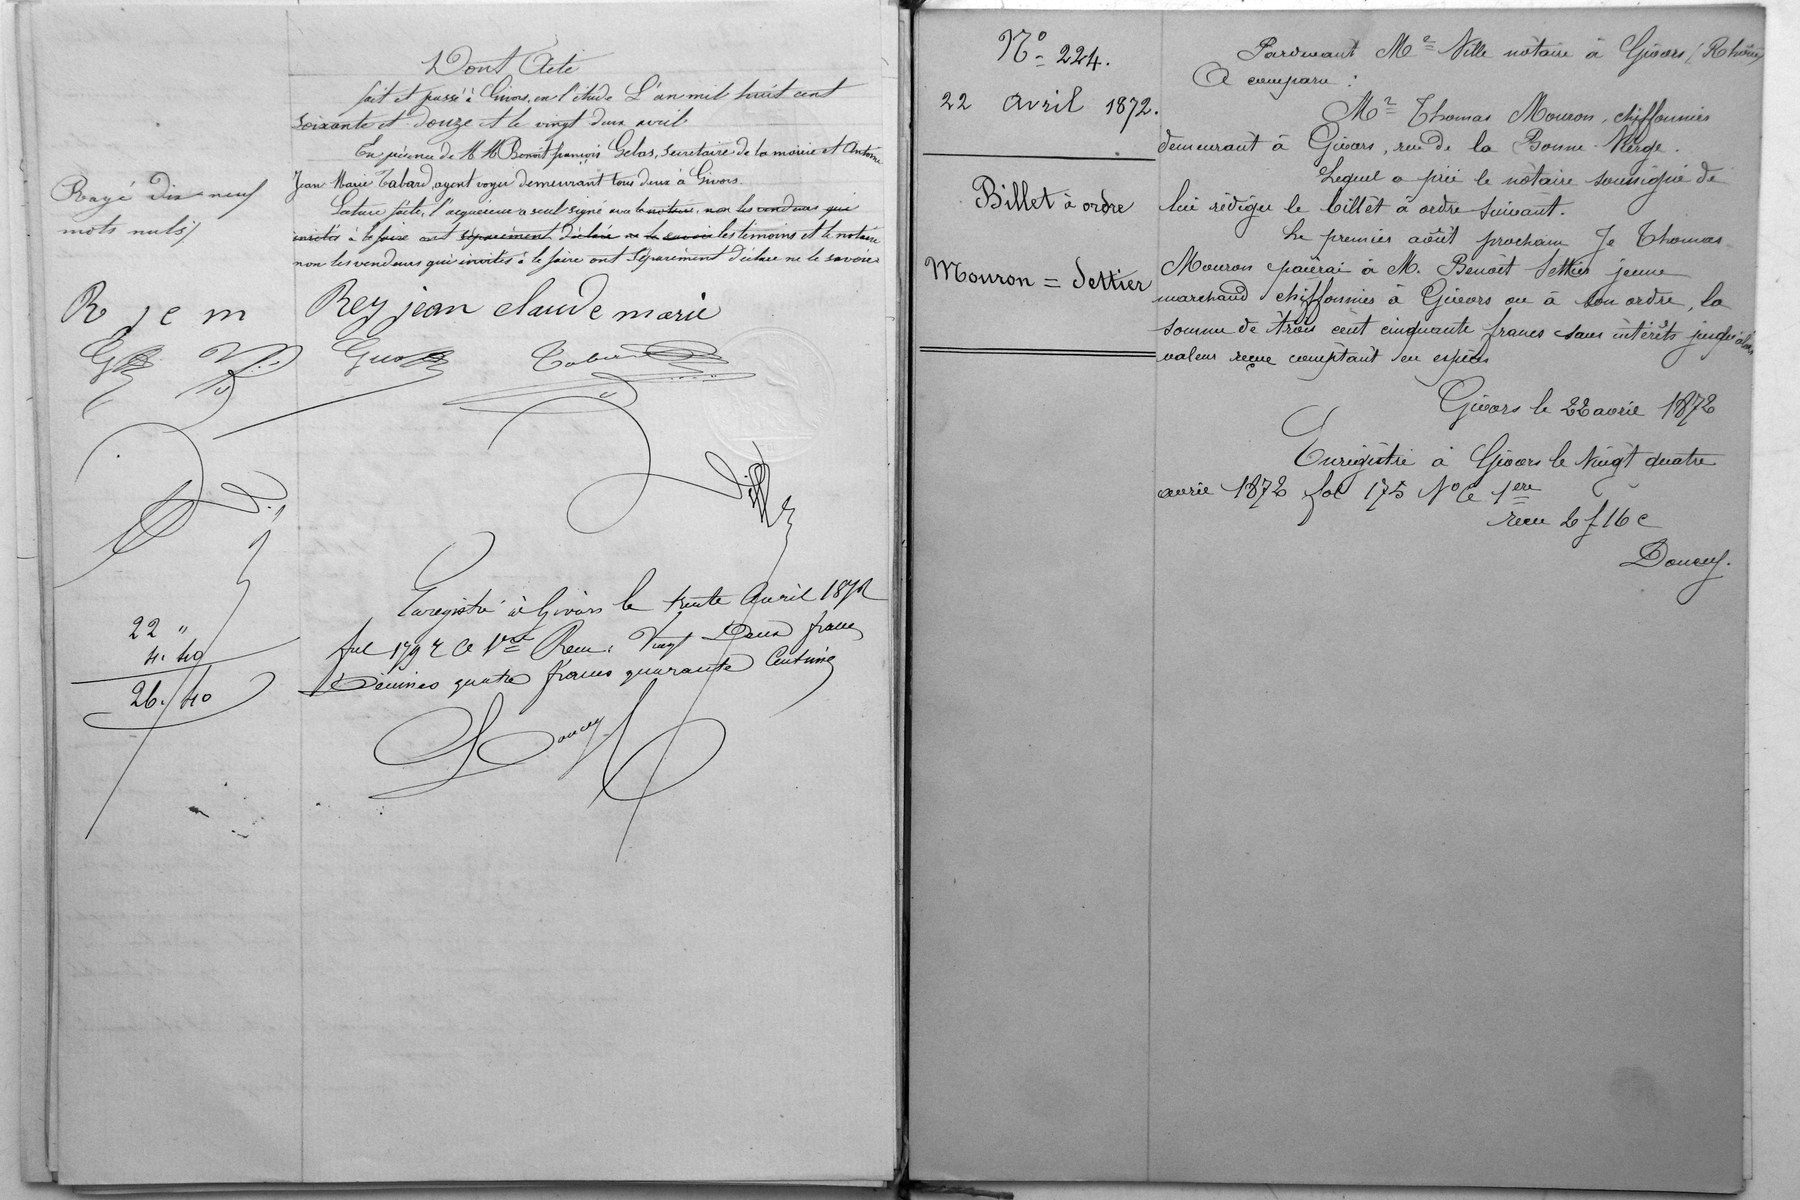 Dont Acte
fait et passé à Givors, en l'étude L'an mil huit cent
soixante et douze et le vingt deux avril
En présence de M.M Benoit françois Gelas, secretaire de la mairie et Antoine
Jean Marie Tabard, agent voyer demeurant tous deux à Givors.
Lecture faite, l'acquéreur a seul signé avec le notaire, non les vendeurs qui
invités à le faire ont séparément déclaré ne le savoir les temoins et le notaire
non les vendeurs qui invités à le faire ont séparément déclaré ne le savoir
Rayé dix neuf
mots nuls
R j c m
Rey jean claude marie
Enregistré à Givors le trente Avril 1872
fol 179 Rº C 1ere Recu Vingt Deux francs
Décimes quatre francs quarante Centimes
22 "
4. 40
26. 40
Doucey
Nº 224.
22 Avril 1872.
Billet à ordre
Mouron = Settier
Pardevant Me Ville notaire à Givors (Rhône)
A comparu :
Mr Thomas Mouron, chiffonnier
demeurant à Givors, rue de la Bonne Vierge.
Lequel a prié le notaire soussigné de
lui rédiger le billet à ordre suivant.
Le premier août prochain Je Thomas
Mouron paierai à M. Benoît Settier jeune
marchand chiffonnier à Givors ou à son ordre, la
somme de trois cent cinquante francs sans intérêts jusqu'alors
valeur reçue comptant en espèces
Givors le 22 avril 1872
Enregistré à Givors le vingt quatre
avril 1872 fol 175 Vº C 1ere
recu 2 f 16 c
Doucey.